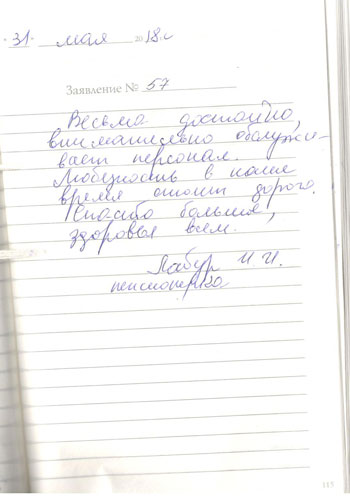 31 мая 2018 г
Заявление № 57
Весьма достойно,
внимательно обслужи-
вает персонал.
Любезность в наше
время стоит дорого.
Спасибо большое,
здоровья всем.
Лабур И.И.
пенсионерка
115